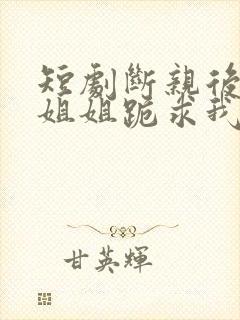 短劇斷親後
姐姐跪求我
甘英輝